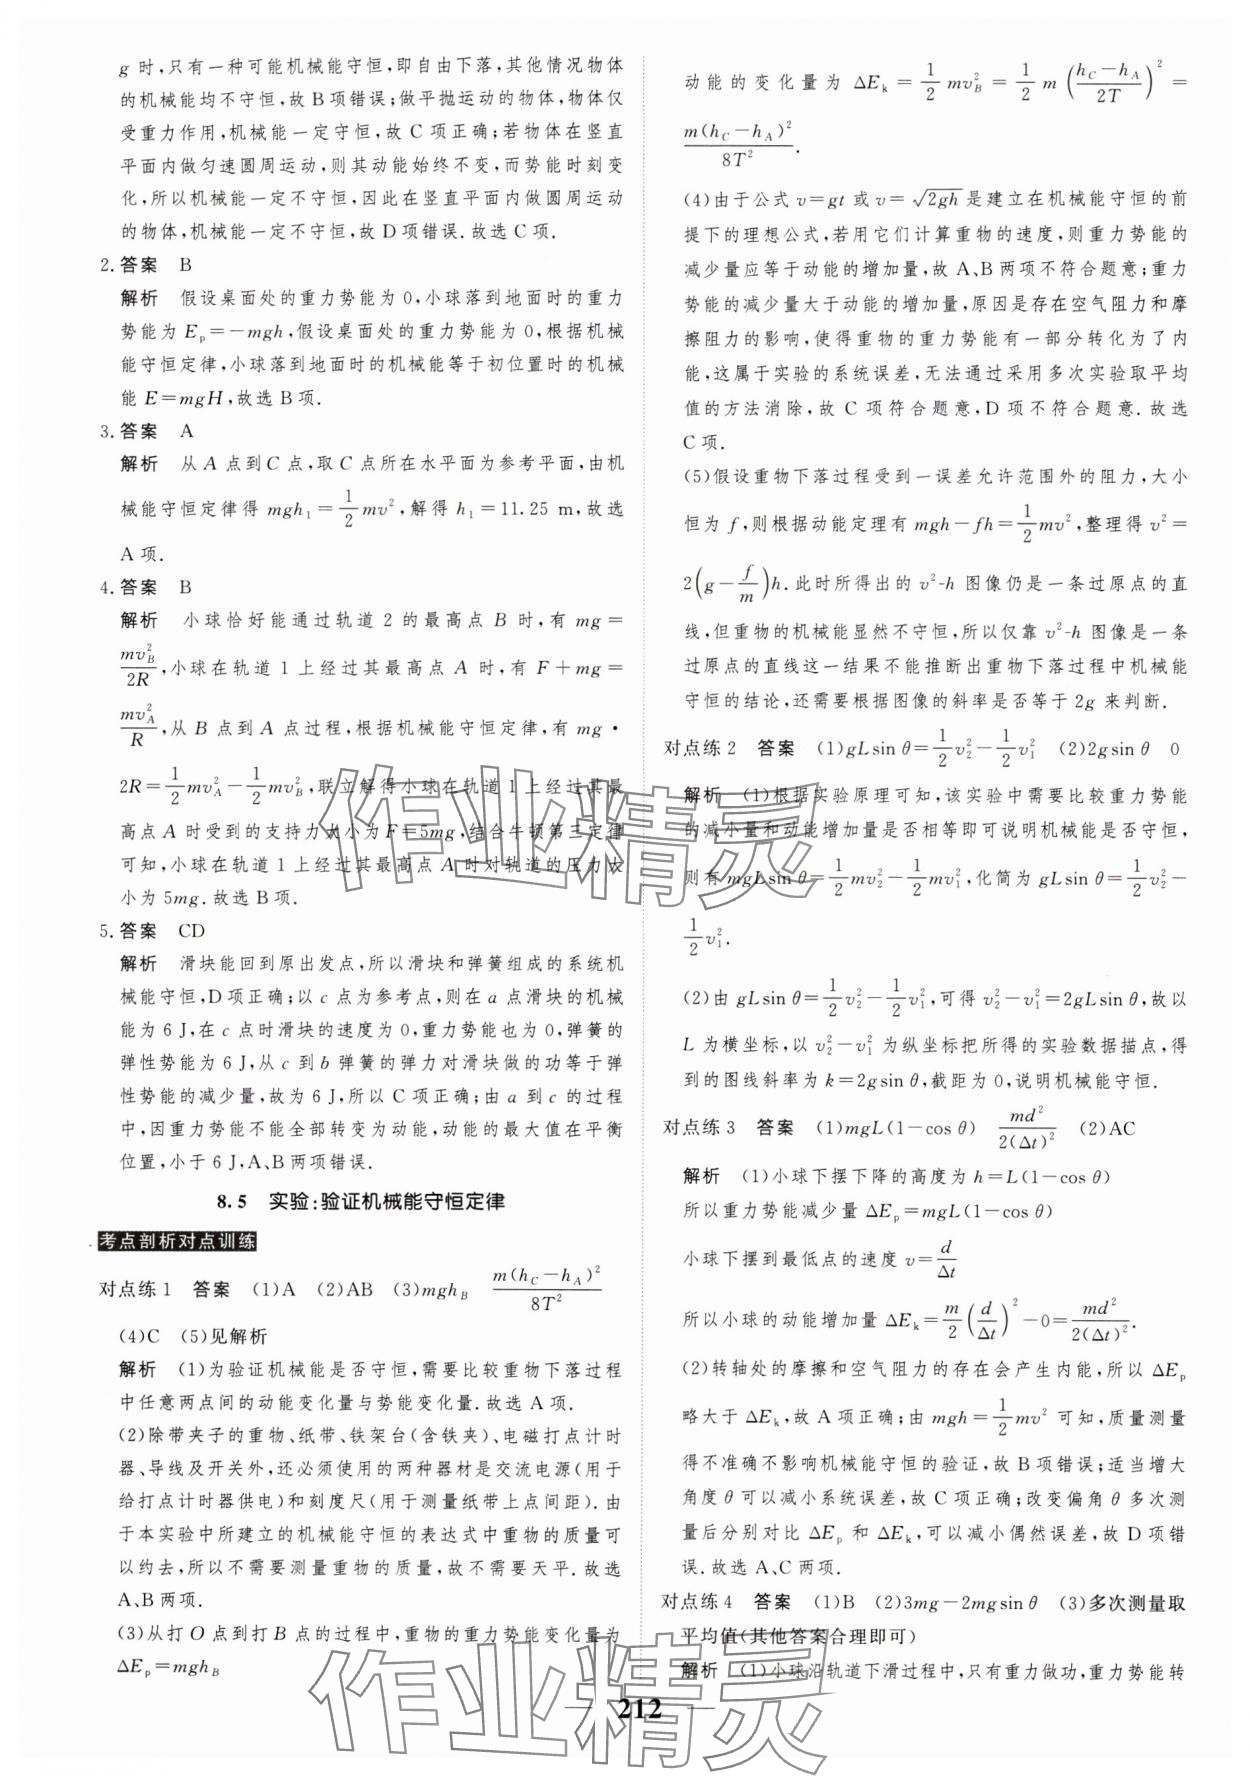 g 时,只有一种可能机械能守恒,即自由下落,其他情况物体
的机械能均不守恒,故 B 项错误;做平抛运动的物体,物体仅
受重力作用,机械能一定守恒,故 C 项正确;若物体在竖直
平面内做匀速圆周运动,则其动能始终不变,而势能时刻变
化,所以机械能一定不守恒,因此在竖直平面内做圆周运动
的物体,机械能一定不守恒,故 D 项错误.故选 C 项.
2. 答案 B
解析 假设桌面处的重力势能为 0,小球落到地面时的重力
势能为 Eₚ=-mgh,假设桌面处的重力势能为 0,根据机械
能守恒定律,小球落到地面时的机械能等于初位置时的机械
能 E=mgH,故选 B 项.
3. 答案 A
解析 从 A 点到 C 点,取 C 点所在水平面为参考平面,由机
械能守恒定律得 mgh₁=1/2 mv²,解得 h₁=11.25 m,故选
A 项.
4. 答案 B
解析 小球恰好能通过轨道 2 的最高点 B 时,有 mg=
mv_B²/2R,小球在轨道 1 上经过其最高点 A 时,有 F+mg=
mv_A²/R,从 B 点到 A 点过程,根据机械能守恒定律,有 mg·
2R=1/2 mv_A²-1/2 mv_B²,联立解得小球在轨道 1 上经过其最
高点 A 时受到的支持力大小为 F=5mg,结合牛顿第三定律
可知,小球在轨道 1 上经过其最高点 A 时对轨道的压力大
小为 5mg.故选 B 项.
5. 答案 CD
解析 滑块能回到原出发点,所以滑块和弹簧组成的系统机
械能守恒,D 项正确;以 c 点为参考点,则在 a 点滑块的机械
能为 6 J,在 c 点时滑块的速度为 0,重力势能也为 0,弹簧的
弹性势能为 6 J,从 c 到 b 弹簧的弹力对滑块做的功等于弹
性势能的减少量,故为 6 J,所以 C 项正确;由 a 到 c 的过程
中,因重力势能不能全部转变为动能,动能的最大值在平衡
位置,小于 6 J,A、B 两项错误.
8.5 实验:验证机械能守恒定律
考点剖析对点训练
对点练 1 答案 (1)A (2)AB (3)mgh_B m(h_C-h_A)²/8T²
(4)C (5)见解析
解析 (1)为验证机械能是否守恒,需要比较重物下落过程
中任意两点间的动能变化量与势能变化量.故选 A 项.
(2)除带夹子的重物、纸带、铁架台(含铁夹)、电磁打点计时
器、导线及开关外,还必须使用的两种器材是交流电源(用于
给打点计时器供电)和刻度尺(用于测量纸带上点间距).由
于本实验中所建立的机械能守恒的表达式中重物的质量可
以约去,所以不需要测量重物的质量,故不需要天平.故选
A、B 两项.
(3)从打 O 点到打 B 点的过程中,重物的重力势能变化量为
ΔEₚ=mgh_B
动能的变化量为 ΔEₖ=1/2 mv_B²=1/2 m((h_C-h_A)/2T)²=
m(h_C-h_A)²/8T².
(4)由于公式 v=gt 或 v=√2gh 是建立在机械能守恒的前
提下的理想公式,若用它们计算重物的速度,则重力势能的
减少量应等于动能的增加量,故 A、B 两项不符合题意;重力
势能的减少量大于动能的增加量,原因是存在空气阻力和摩
擦阻力的影响,使得重物的重力势能有一部分转化为了内
能,这属于实验的系统误差,无法通过采用多次实验取平均
值的方法消除,故 C 项符合题意,D 项不符合题意.故选
C 项.
(5)假设重物下落过程受到一误差允许范围外的阻力,大小
恒为 f,则根据动能定理有 mgh-fh=1/2 mv²,整理得 v²=
2(g-f/m)h.此时所得出的 v²-h 图像仍是一条过原点的直
线,但重物的机械能显然不守恒,所以仅靠 v²-h 图像是一条
过原点的直线这一结果不能推断出重物下落过程中机械能
守恒的结论,还需要根据图像的斜率是否等于 2g 来判断.
对点练 2 答案 (1)gLsin θ=1/2 v₂²-1/2 v₁² (2)2gsin θ 0
解析 (1)根据实验原理可知,该实验中需要比较重力势能
的减小量和动能增加量是否相等即可说明机械能是否守恒,
则有 mgLsin θ=1/2 mv₂²-1/2 mv₁²,化简为 gLsin θ=1/2 v₂²-
1/2 v₁².
(2)由 gLsin θ=1/2 v₂²-1/2 v₁²,可得 v₂²-v₁²=2gLsin θ,故以
L 为横坐标,以 v₂²-v₁² 为纵坐标把所得的实验数据描点,得
到的图线斜率为 k=2gsin θ,截距为 0,说明机械能守恒.
对点练 3 答案 (1)mgL(1-cos θ) md²/2(Δt)² (2)AC
解析 (1)小球下摆下降的高度为 h=L(1-cos θ)
所以重力势能减少量 ΔEₚ=mgL(1-cos θ)
小球下摆到最低点的速度 v=d/Δt
所以小球的动能增加量 ΔEₖ=m/2(d/Δt)²-0=md²/2(Δt)².
(2)转轴处的摩擦和空气阻力的存在会产生内能,所以 ΔEₚ
略大于 ΔEₖ,故 A 项正确;由 mgh=1/2 mv² 可知,质量测量
得不准确不影响机械能守恒的验证,故 B 项错误;适当增大
角度 θ 可以减小系统误差,故 C 项正确;改变偏角 θ 多次测
量后分别对比 ΔEₚ 和 ΔEₖ,可以减小偶然误差,故 D 项错
误.故选 A、C 两项.
对点练 4 答案 (1)B (2)3mg-2mgsin θ (3)多次测量取
平均值(其他答案合理即可)
解析 (1)小球沿轨道下滑过程中,只有重力做功,重力势能转
212
作业精灵
作业精灵